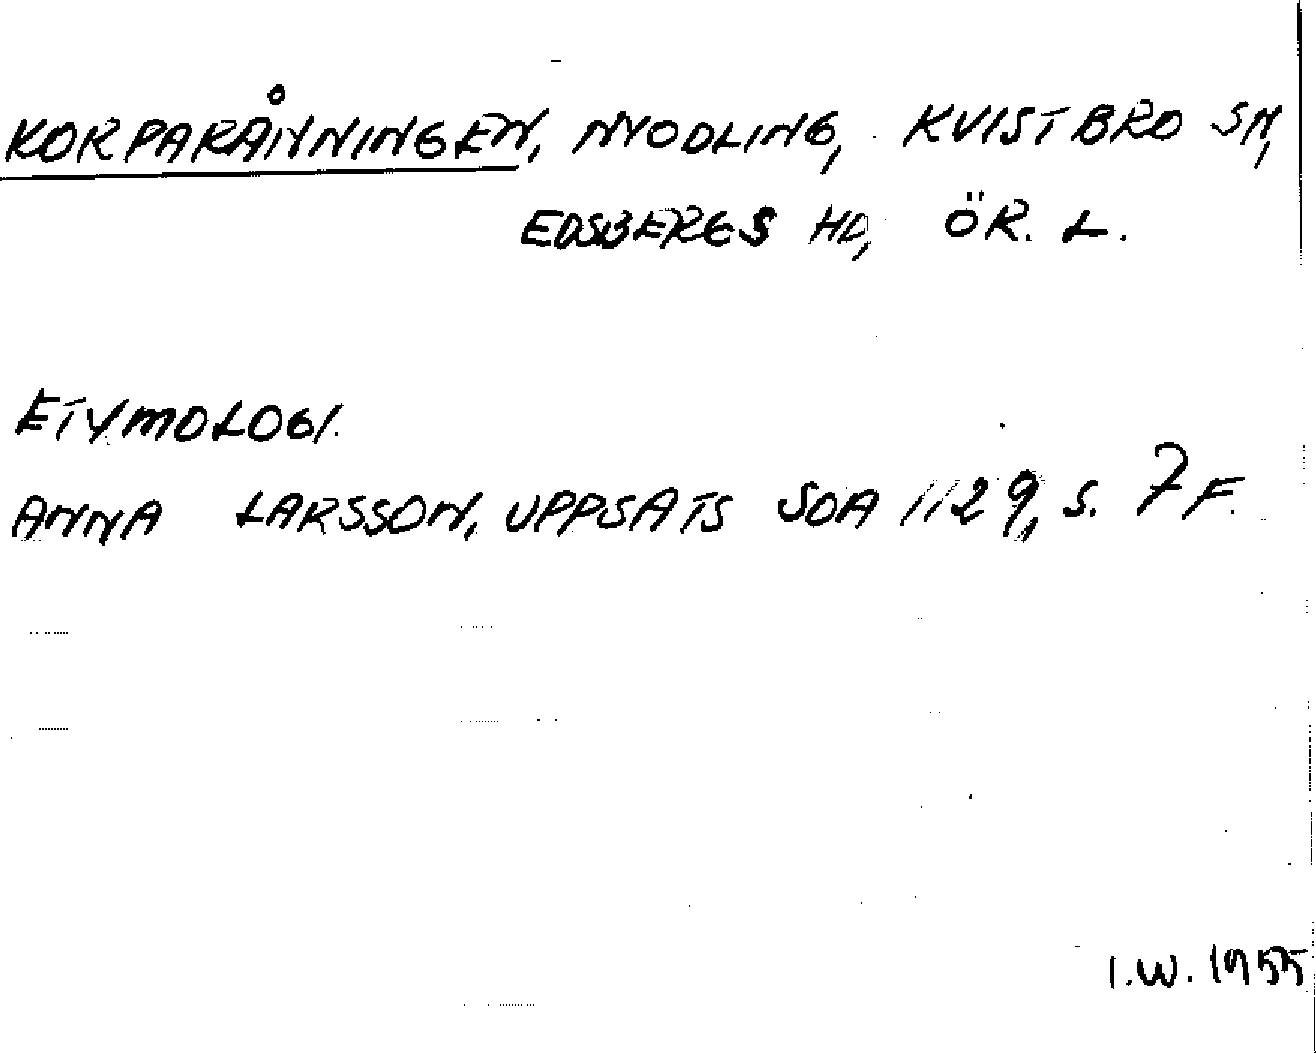 KORPARÅNNINGEN, NYODLING, KVISTBRO SN,
EDSBERGS HD, ÖR. L.
ETYMOLOGI.
ANNA LARSSON, UPPSATS SOA 1129, S. 7 F.
I.W. 1955